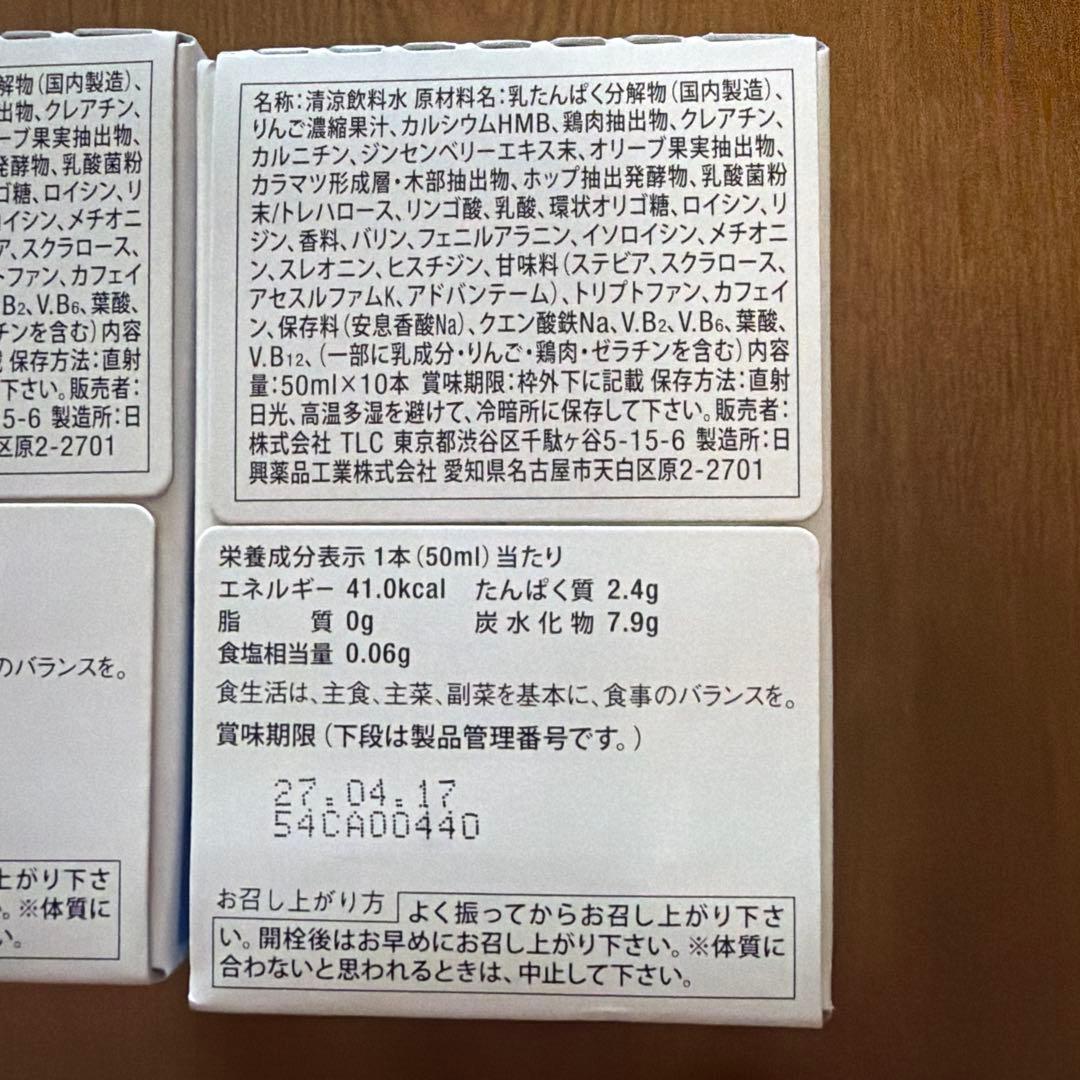 解物(国内製造)、
出物、クレアチン、
ーブ果実抽出物、
発酵物、乳酸菌粉
ゴ糖、ロイシン、リ
イシン、メチオニ
ア、スクラロース、
トファン、カフェイ
B2、V.B6、葉酸、
チンを含む)内容
保存方法:直射
下さい。販売者:
15-6 製造所:日
区原2-2701
のバランスを。
上がり下さ
。※体質に
い。
名称:清涼飲料水 原材料名:乳たんぱく分解物(国内製造)、
りんご濃縮果汁、カルシウムHMB、鶏肉抽出物、クレアチン、
カルニチン、ジンセンベリーエキス末、オリーブ果実抽出物、
カラマツ形成層・木部抽出物、ホップ抽出発酵物、乳酸菌粉
末/トレハロース、リンゴ酸、乳酸、環状オリゴ糖、ロイシン、リ
ジン、香料、バリン、フェニルアラニン、イソロイシン、メチオニ
ン、スレオニン、ヒスチジン、甘味料(ステビア、スクラロース、
アセスルファムK、アドバンテーム)、トリプトファン、カフェイ
ン、保存料(安息香酸Na)、クエン酸鉄Na、V.B2、V.B6、葉酸、
V.B12、(一部に乳成分・りんご・鶏肉・ゼラチンを含む)内容
量:50ml×10本 賞味期限:枠外下に記載 保存方法:直射
日光、高温多湿を避けて、冷暗所に保存して下さい。販売者:
株式会社 TLC 東京都渋谷区千駄ヶ谷5-15-6 製造所:日
興薬品工業株式会社 愛知県名古屋市天白区原2-2701
栄養成分表示 1本(50ml)当たり
エネルギー 41.0kcal たんぱく質 2.4g
脂質 0g 炭水化物 7.9g
食塩相当量 0.06g
食生活は、主食、主菜、副菜を基本に、食事のバランスを。
賞味期限(下段は製品管理番号です。)
27.04.17
54CA00440
お召し上がり方 よく振ってからお召し上がり下さ
い。開栓後はお早めにお召し上がり下さい。※体質に
合わないと思われるときは、中止して下さい。